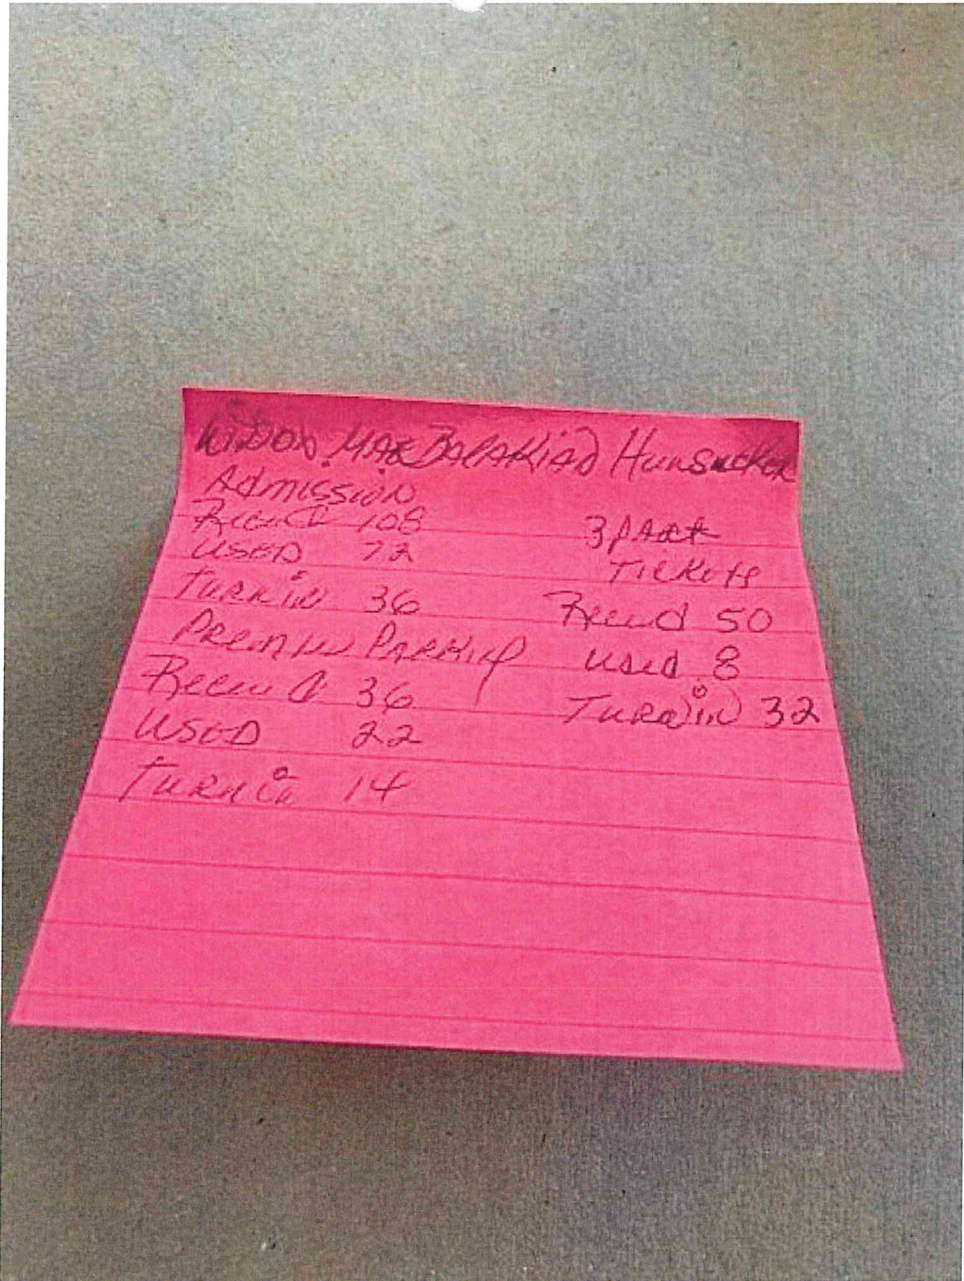 Hunsucker
Admission
Recv'd 108
USED 72
TURN IN 36
Premium Parking
Recv'd 36
USED 22
TURN in 14
3 part
Tickets
Recv'd 50
used 8
Turn in 32